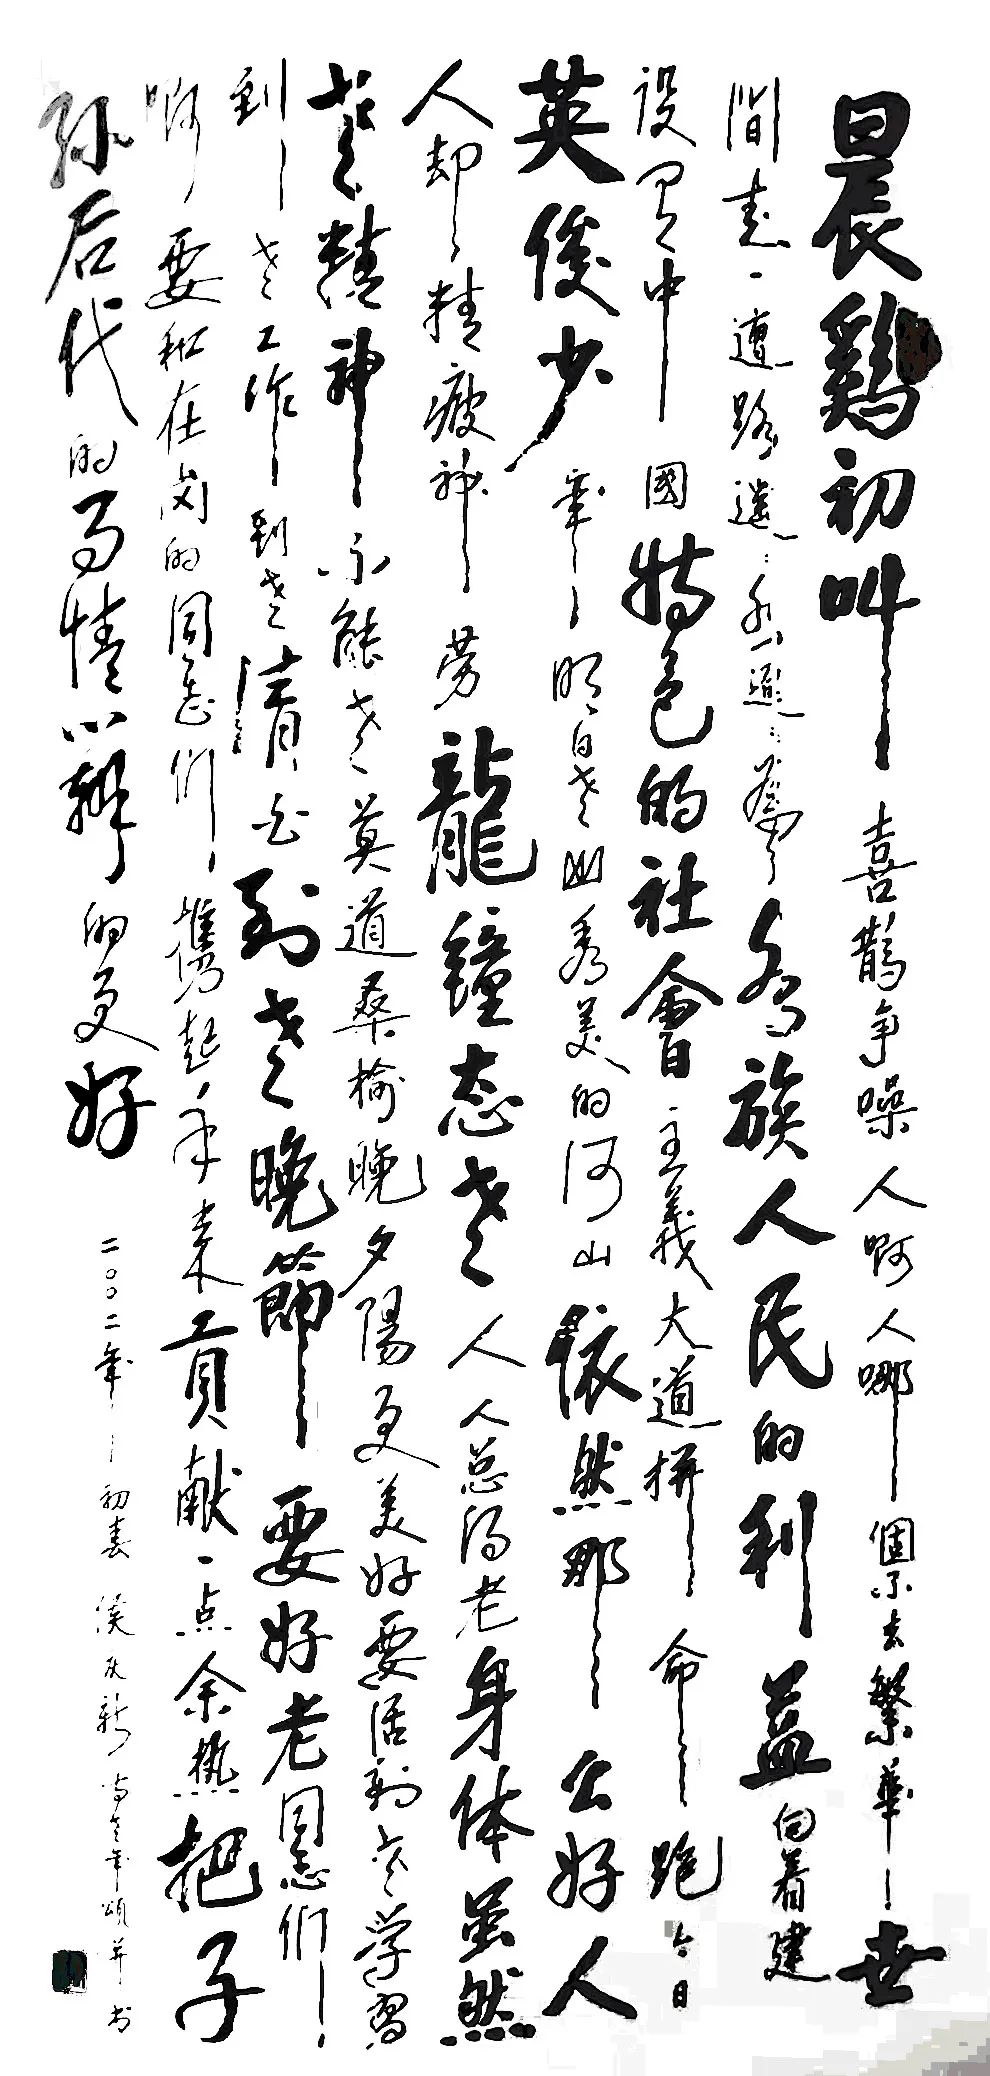 晨鷄初叫喜鹊争噪人啊人哪個不去繁華世
間走一遭路遥遥水迢迢為了各族人民的利益向着建
設有中國特色的社會主義大道拼命跑今日
英俊少年明日老山秀美的河山依然那么好人
人却精疲神劳龍鐘态老人人总得老身体虽然
老精神不能老莫道桑榆晚夕陽更美好要活到老学習
到老工作到老清白到老晚節要好老同志們
啊要和在岗的同志們携起手来貢献一点余热把子
孙后代的事情办的更好
二〇〇二年初春 侯 新 老年頌并书